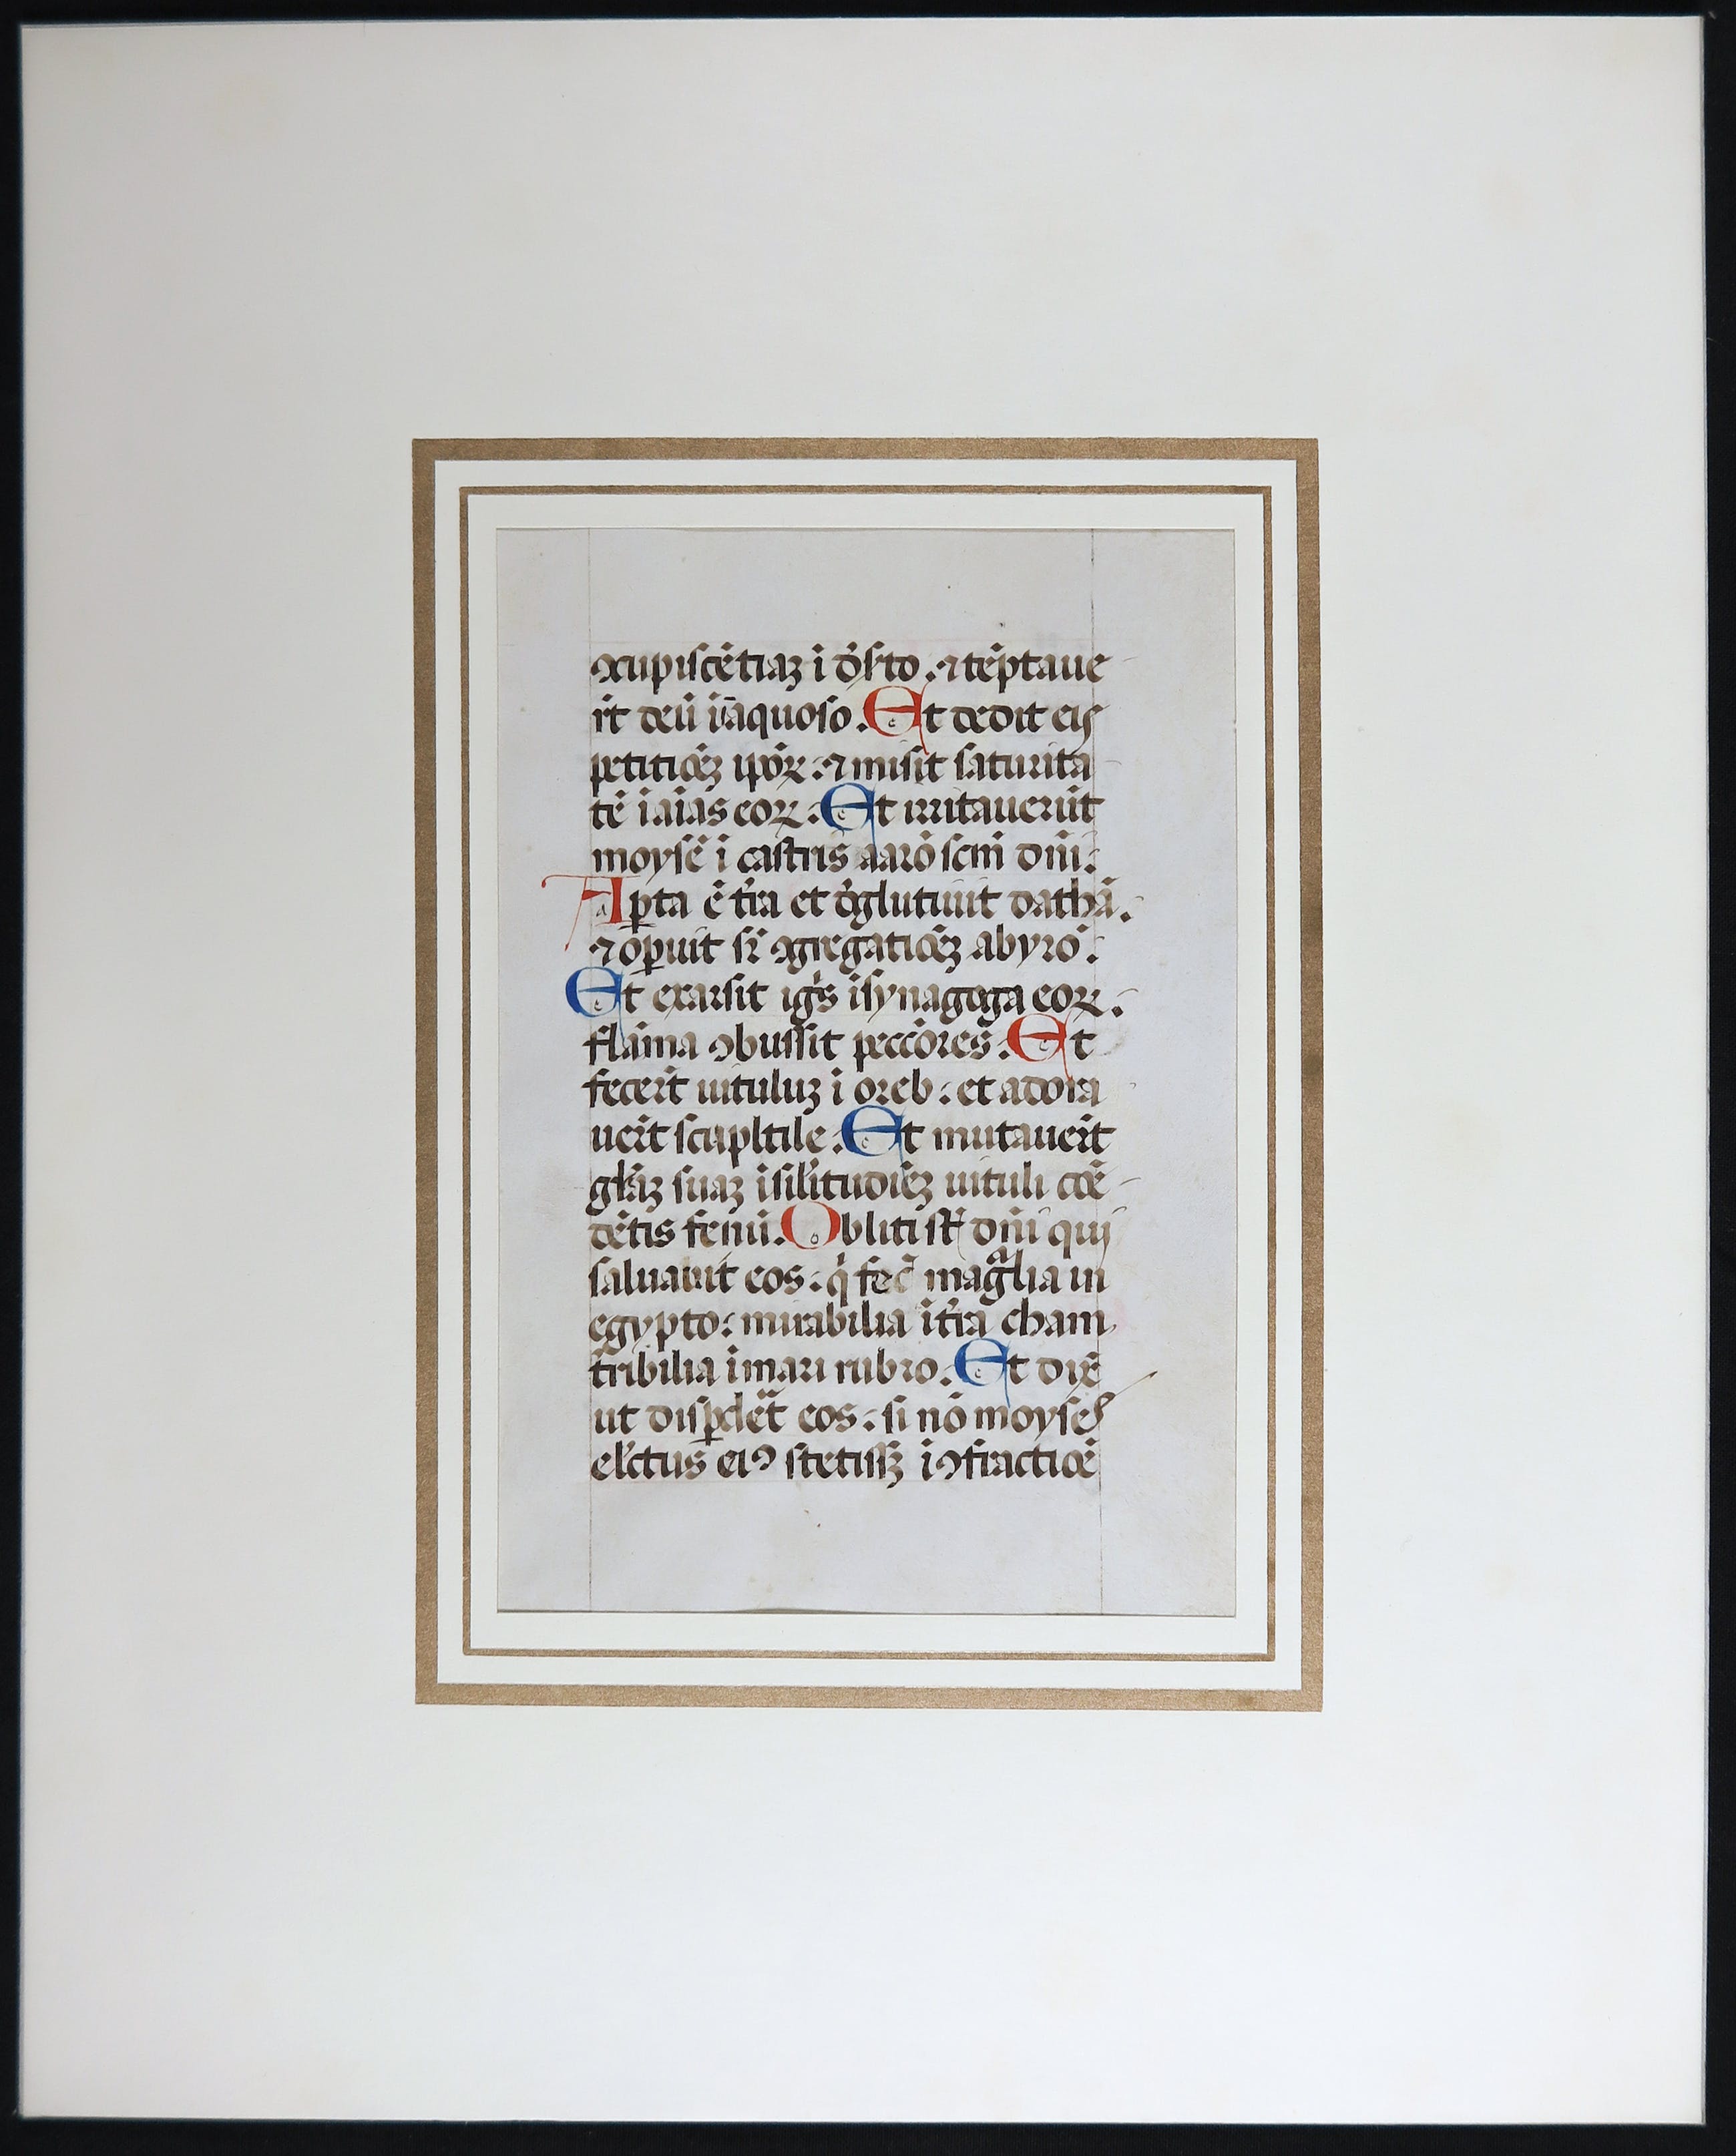 ꝯcupiscētiaꝫ i d̓sto. ⁊ tēptaue
rt̄ deū īaquoso. Et dedit eis
petitiōeꝫ ipōꝝ: ⁊ misit saturita
tē i aīas eoꝝ: Et irritauerūt
moysē i castris aarō scm̄ dn̄i:
Apta ē tr̄a et d̓glutiuit dathā.
⁊ oꝑuit sr̄ ꝯgregatiōeꝫ abyrō:
Et exarsit igs̄ i synagoga eoꝝ.
flāma ꝯbussit peccōres: Et
fecert̄ uituluꝫ i oreb: et adora
uert̄ scupltile: Et mutauert̄
gl̄iaꝫ suaꝫ i sil̄itudīeꝫ uituli cōe
dētis fenū. Obliti st̄ dn̄i qui
saluauit eos: q̓ fec̄ magᵃlia in
egypto: mirabilia i tr̄a cham
tr̄ibilia i mari rubro. Et dix̄
ut disꝑdet̄ eos: si nō moyses
el̄ctus eiꝰ stetissꝫ i ꝯfractiōe